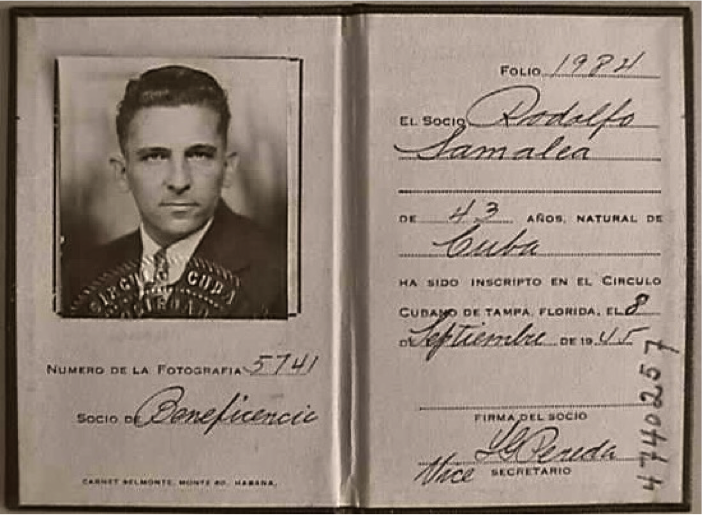 CIRCULO CUBA
NUMERO DE LA FOTOGRAFIA 5741
SOCIO DE Beneficencia
CARNET BELMONTE, MONTE 60, HABANA.
FOLIO 1984
EL SOCIO Rodolfo
Lamalea
DE 43 AÑOS, NATURAL DE
Cuba
HA SIDO INSCRIPTO EN EL CIRCULO
CUBANO DE TAMPA, FLORIDA, EL 8
D Septiembre DE 19 45
FIRMA DEL SOCIO
Pereda
Vice SECRETARIO
4740257